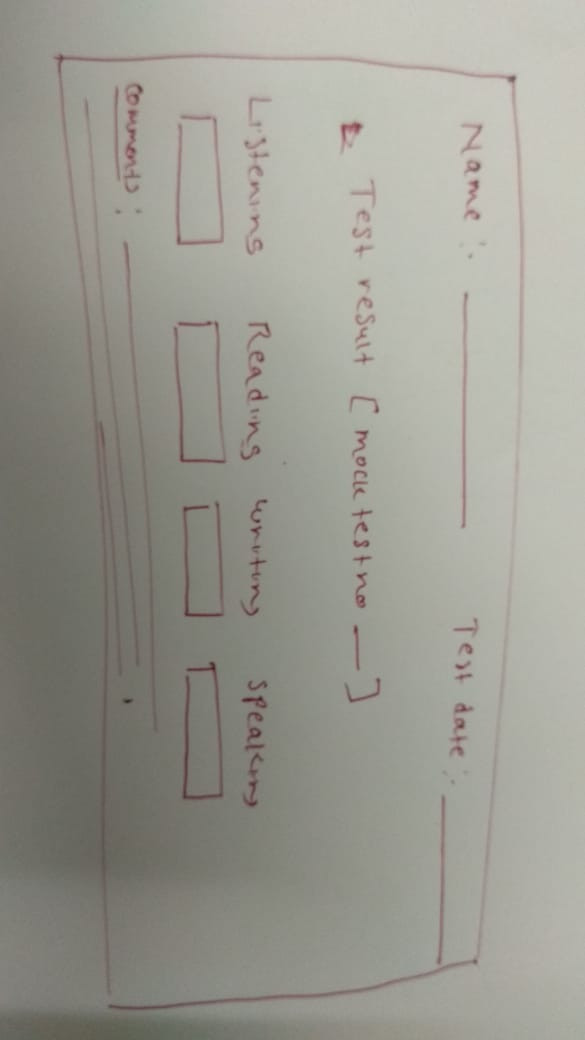 Name :- ________ Test date :- ________
Test result [mock test no __]
Listening Reading Writing Speaking
Comments :